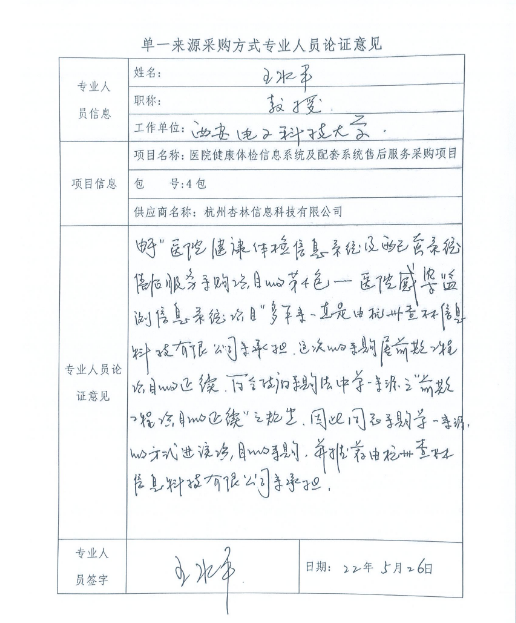 单一来源采购方式专业人员论证意见
专业人员信息
姓名：王水平
职称：教授
工作单位：西安电子科技大学.
项目信息
项目名称：医院健康体检信息系统及配套系统售后服务采购项目
包 号:4包
供应商名称：杭州杏林信息科技有限公司
专业人员论证意见
由于"医院健康体检信息系统及配套系统
售后服务采购项目的第4包—医院感染监
测信息系统项目"多年来一直是由杭州杏林信息
科技有限公司来承担.这次的采购属前期工程
项目的延续.符合政府采购法中单一来源之"前期
工程项目的延续"之规定.因此同意采购单一来源
的方式进该项目的采购.并推荐由杭州杏林
信息科技有限公司来承担.
专业人员签字
王水平
日期：22年5月26日